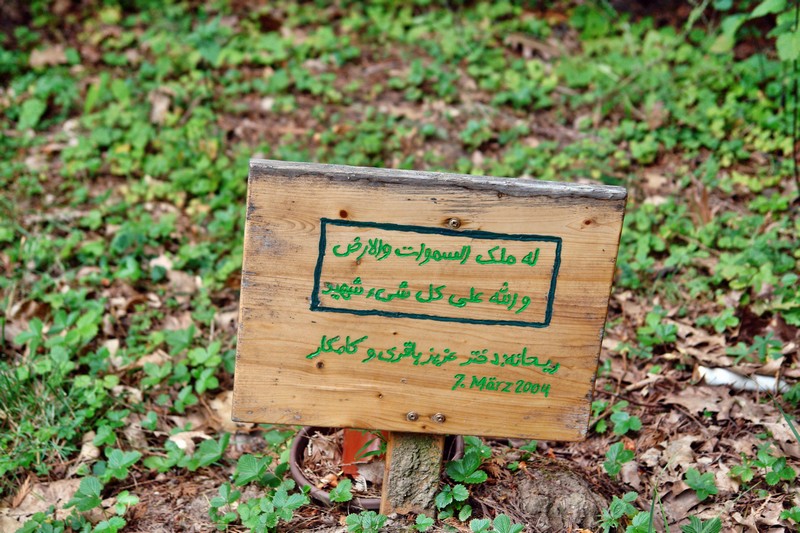 له ملک السموات والارض
و الله علی کل شیء شهید
ریحانه: دختر عزیز باقری و کامکار
7. März 2004